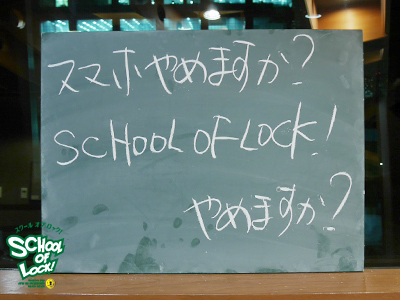 スマホやめますか?
SCHOOL OF LOCK!
やめますか?
スクールオブロック!
SCHOOL
OF
LOCK!